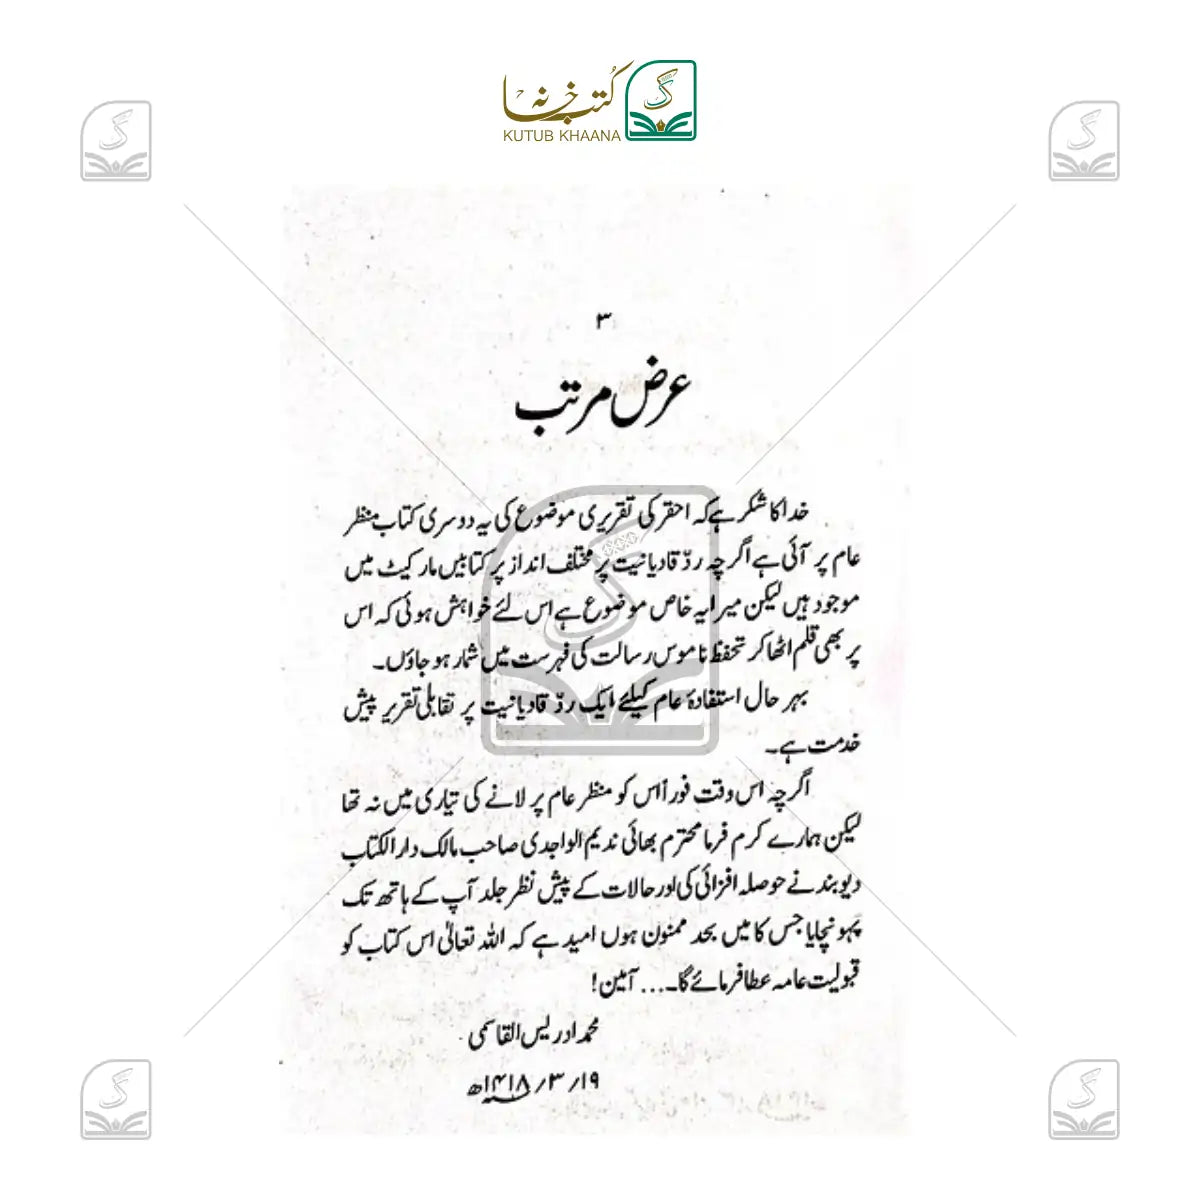 کتب خانہ
KUTUB KHAANA
۳
عرض مرتب
خدا کا شکر ہے کہ احقر کی تقریری موضوع کی یہ دوسری کتاب منظر
عام پر آئی ہے اگرچہ ردّ قادیانیت پر مختلف انداز پر کتابیں مارکیٹ میں
موجود ہیں لیکن میرا یہ خاص موضوع ہے اس لئے خواہش ہوئی کہ اس
پر بھی قلم اٹھا کر تحفظ ناموس رسالت کی فہرست میں شمار ہو جاؤں۔
بہر حال استفادۂ عام کیلئے ایک ردّ قادیانیت پر تقابلی تقریر پیش
خدمت ہے۔
اگرچہ اس وقت فوراً اس کو منظر عام پر لانے کی تیاری میں نہ تھا
لیکن ہمارے کرم فرما محترم بھائی ندیم الواجدی صاحب مالک دار الکتاب
دیوبند نے حوصلہ افزائی کی اور حالات کے پیش نظر جلد آپ کے ہاتھ تک
پہونچایا جس کا میں بحد ممنون ہوں امید ہے کہ اللہ تعالیٰ اس کتاب کو
قبولیت عامہ عطا فرمائے گا۔... آمین!
محمد ادریس القاسمی
۱۹/۳/۱۴۱۸ھ